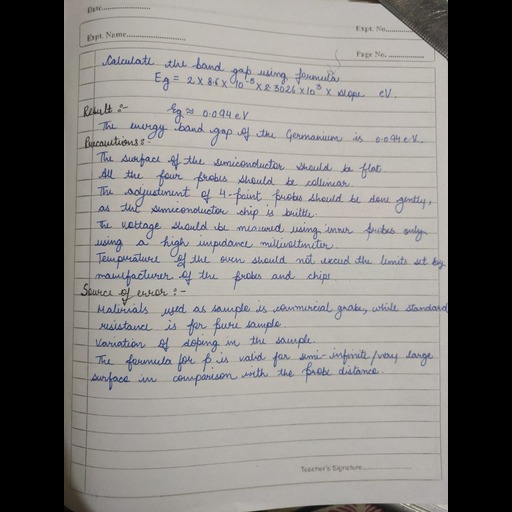 Date....................
Expt. No....................
Expt. Name....................
Page No. ....................
Calculate the band gap using formula
Eg = 2 x 8.6 x 10⁻⁵ x 2.3026 x 10³ x slope eV.
Result :-
Eg ≈ 0.094 eV
The energy band gap of the Germanium is 0.094 eV.
Precautions :-
The surface of the semiconductor should be flat.
All the four probes should be collinear.
The adjustment of 4-point probes should be done gently,
as the semiconductor chip is brittle.
The voltage should be measured using inner probes only
using a high impedance millivoltmeter.
Temperature of the oven should not exceed the limits set by
manufacturer of the probes and chips
Source of error :-
Materials used as sample is commercial grade, while standard
resistance is for pure sample.
Variation of doping in the sample.
The formula for ρ is valid for semi-infinite/very large
surface in comparison with the probe distance.
Teacher's Signature....................